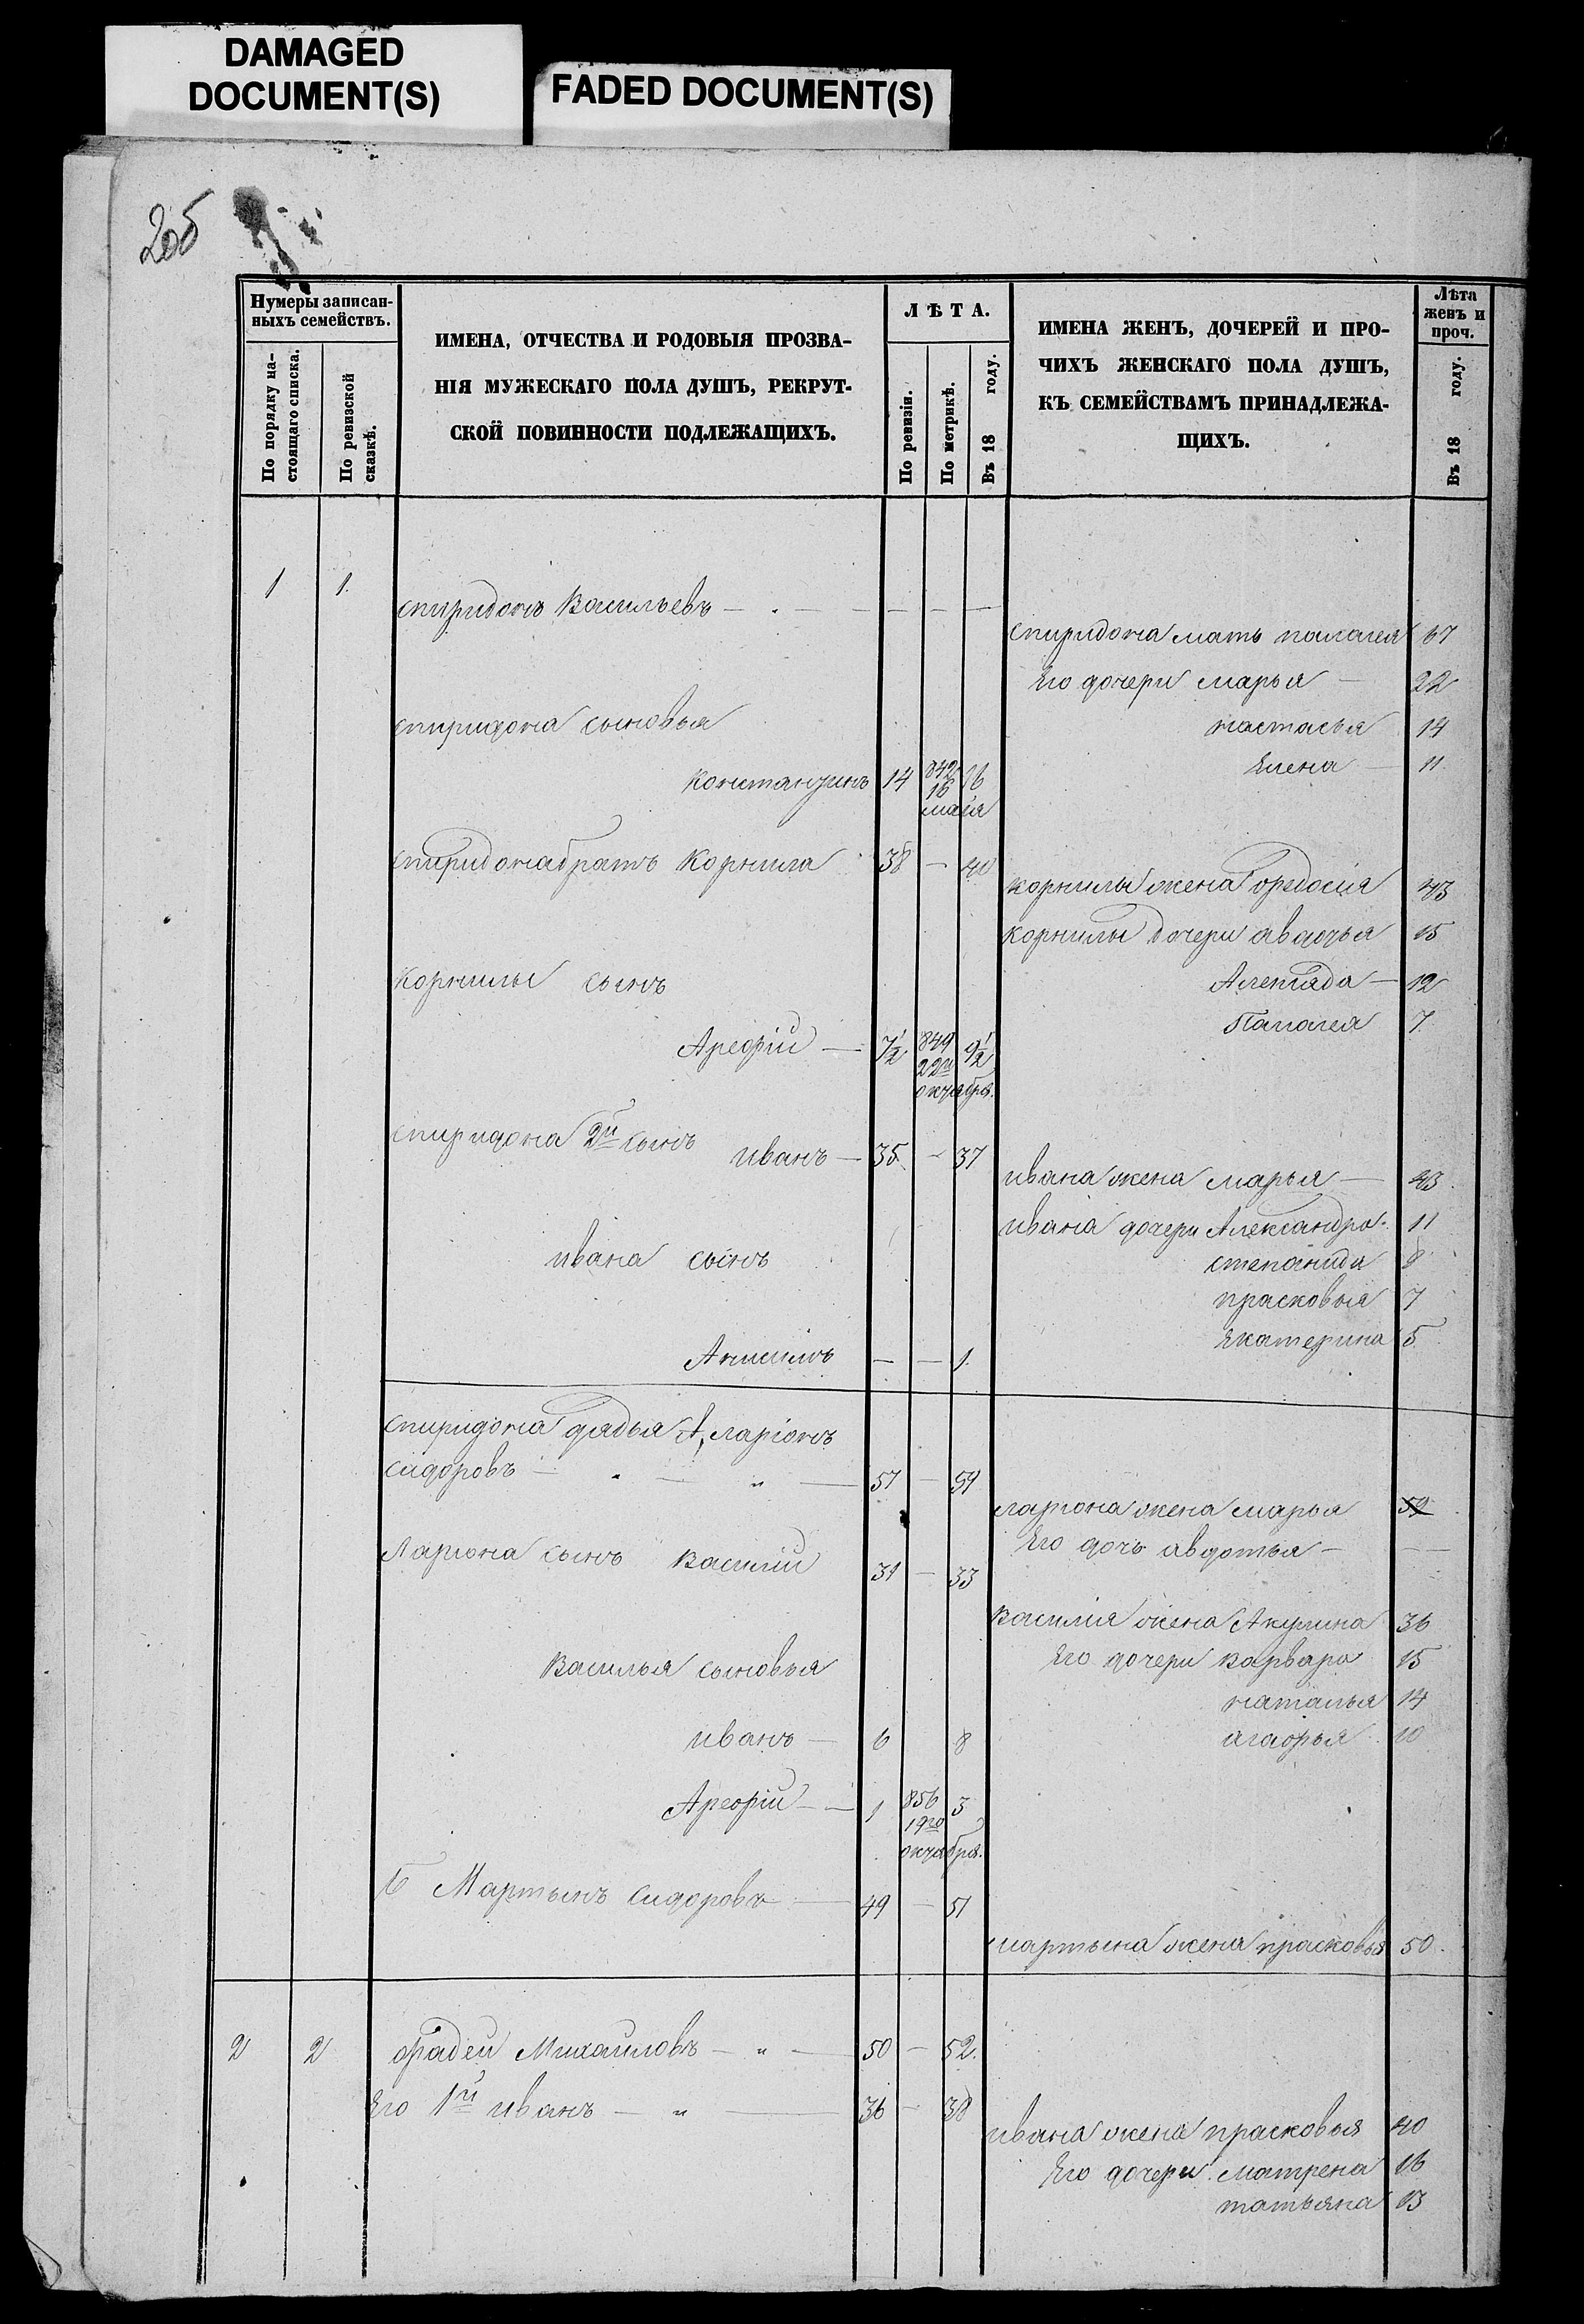 DAMAGED
DOCUMENT(S)
FADED DOCUMENT(S)
Нумеры записан-
ныхъ семействъ.
По порядку на-
стоящаго списка.
По ревизской
сказкѣ.
ИМЕНА, ОТЧЕСТВА И РОДОВЫЯ ПРОЗВА-
НІЯ МУЖЕСКАГО ПОЛА ДУШЪ, РЕКРУТ-
СКОЙ ПОВИННОСТИ ПОДЛЕЖАЩИХЪ.
ЛѢТА.
По ревизіи.
По метрикѣ.
Въ 18 году.
ИМЕНА ЖЕНЪ, ДОЧЕРЕЙ И ПРО-
ЧИХЪ ЖЕНСКАГО ПОЛА ДУШЪ,
КЪ СЕМЕЙСТВАМЪ ПРИНАДЛЕЖА-
ЩИХЪ.
Лѣта
женъ и
проч.
Въ 18 году.
1 1. спиридонъ Васильевъ — — — —
спиридона мать палагея 67
Его дочери марья — 22
спиридона сыновья
настасья 14
Елена — 11
Констанзинъ 14 842 16 маія 16
спиридона братъ Корнила 38 — 40
Корнилы жена федосия 43
Корнилы дочери авдотья 15
Корнилы сынъ
12
Палагея 7
Арефiи — 7½ 849 22го октября. 9½
спиридона 2й сынъ иванъ — 35. — 37
ивана жена марья — 43.
ивана дочери Александра. 11
ивана сынъ
степанида 9
прасковья 7
Екатерина 5.
— — 1.
спиридона дядья А, ларіонъ
сидоровъ — — 57 — 59
лариона жена марья 59
Его дочь авдотья — — —
Лариона сынъ Василий 31 — 33
Василия жена Акулина 36
Василья сыновья
Его дочери варвара 15
наталья 14
иванъ — 6 8
агафья 10
Арефiи — — 1 856 19го октября. 3
Б Мартынъ сидоровъ — 49 — 51
мартына жена прасковья 50.
2 2 фадеи Михаиловъ — „ — 50 — 52.
Его 1й иванъ — „ — 36 — 38
ивана жена прасковья 40
Его дочери матрена 16
татьяна 13